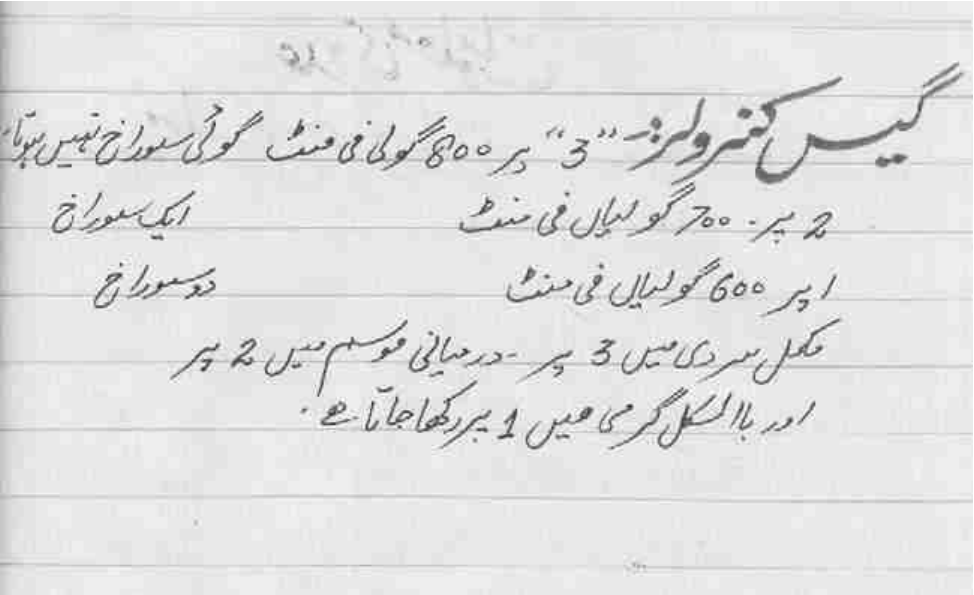 گیس کنٹرولر:- "3" پر 800 گولی فی منٹ گوئی سوراخ نہیں ہوتا۔
2 پر۔ 700 گولیاں فی منٹ ایک سوراخ
1 پر 600 گولیاں فی منٹ دو سوراخ
مکمل سردی میں 3 پر ۔درمیانی موسم میں 2 پر
اور باالکل گرمی میں 1 پر رکھا جاتا ہے ۔